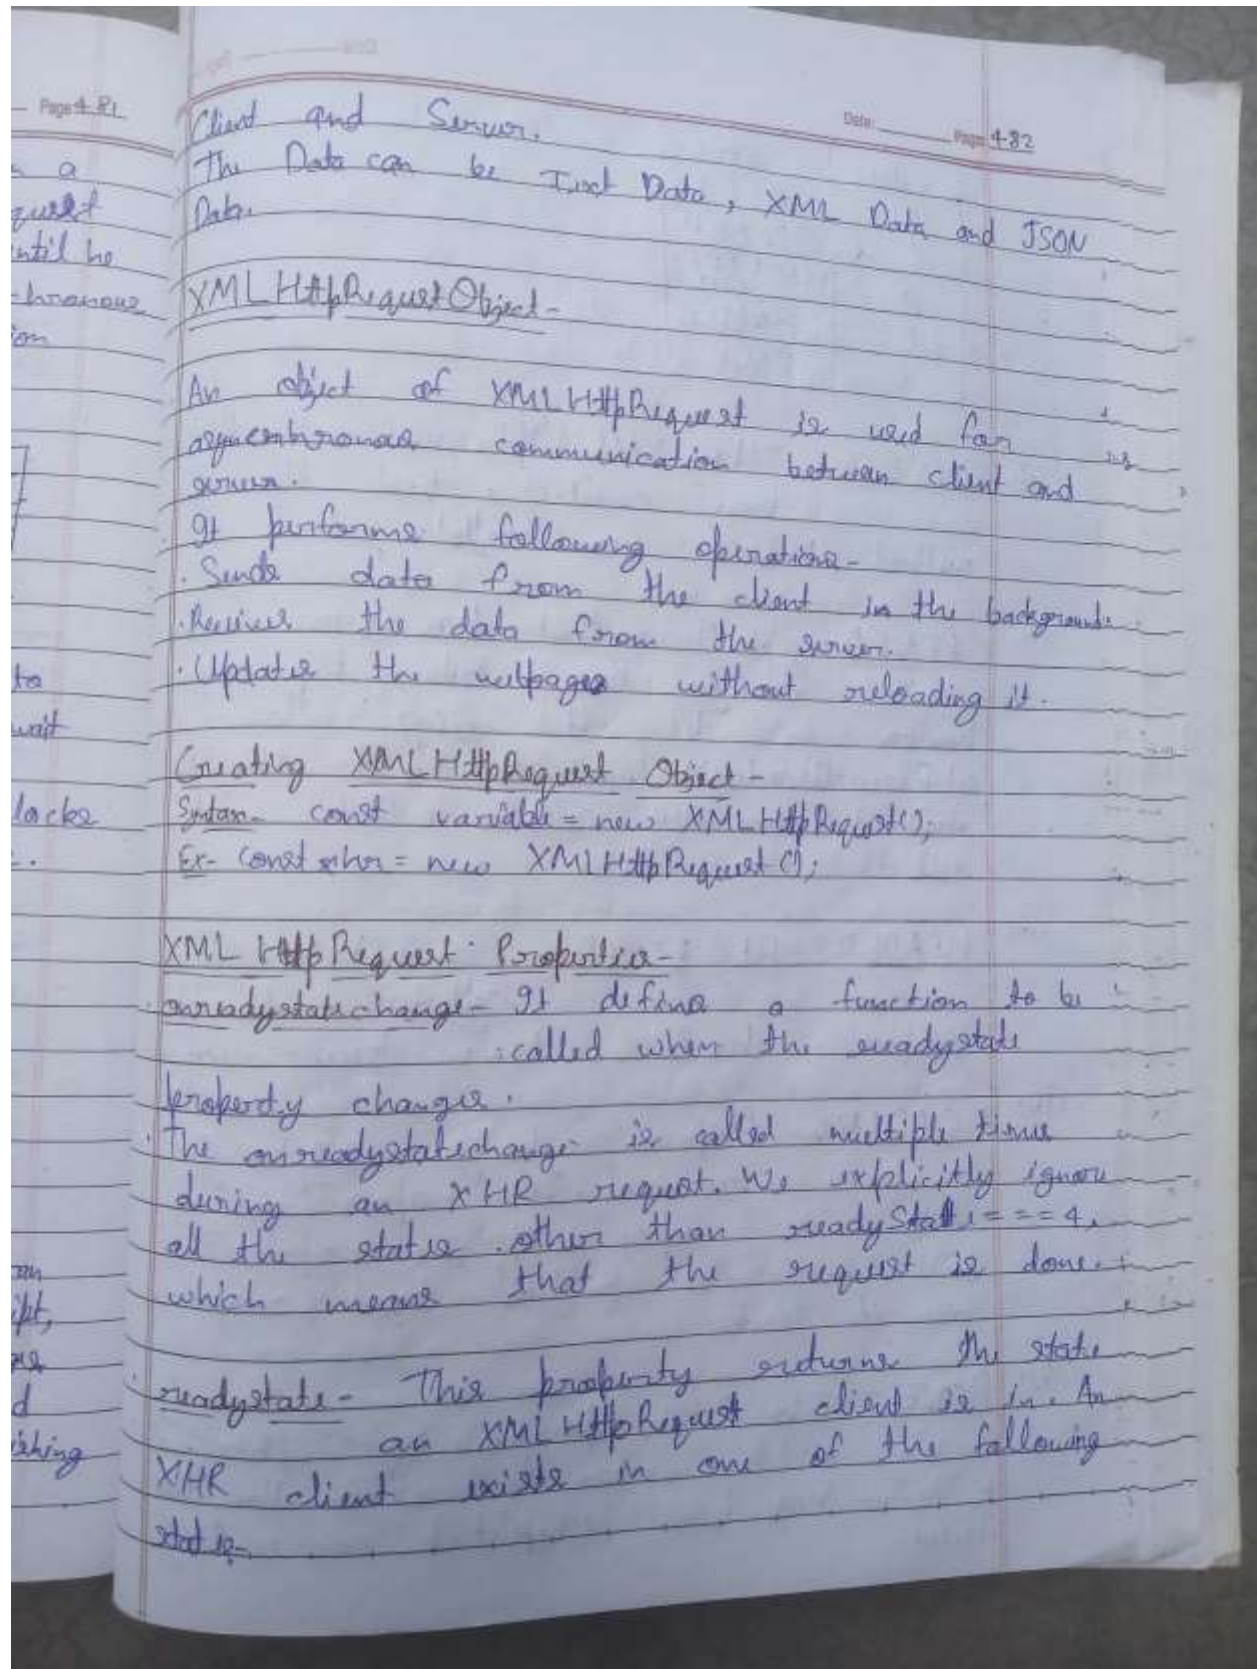 Page 481
a
quest
until he
-hronous
ion
to
wait
locks
ipt,
d
ishing
Date: Page: 482
Client and Server.
The Data can be Text Data, XML Data and JSON
Data.
XMLHttpRequest Object-
An object of XMLHttpRequest is used for
asyncnhronous communication between client and
server.
It performs following operations-
. Sends data from the client in the background.
. Receives the data from the server.
. Updates the webpages without reloading it.
Creating XMLHttpRequest Object-
Syntax- const variable = new XMLHttpRequest();
Ex- const xhr = new XMLHttpRequest();
XML Http Request Properties-
onreadystatechange- It defines a function to be
called when the readystate
property changes.
. The onreadystatechange is called multiple times
during an XHR request. We explicitly ignore
all the states other than readyState === 4,
which means that the request is done.
. readystate- This property returns the state
an XMLHttpRequest client is in. An
XHR client exists in one of the following
states-